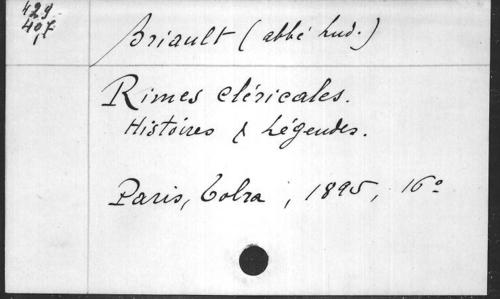 429
407
1
Briault (abbé Lud.)
Rimes cléricales.
Histoires & Légendes.
Paris, Tolra, 1895, 16°